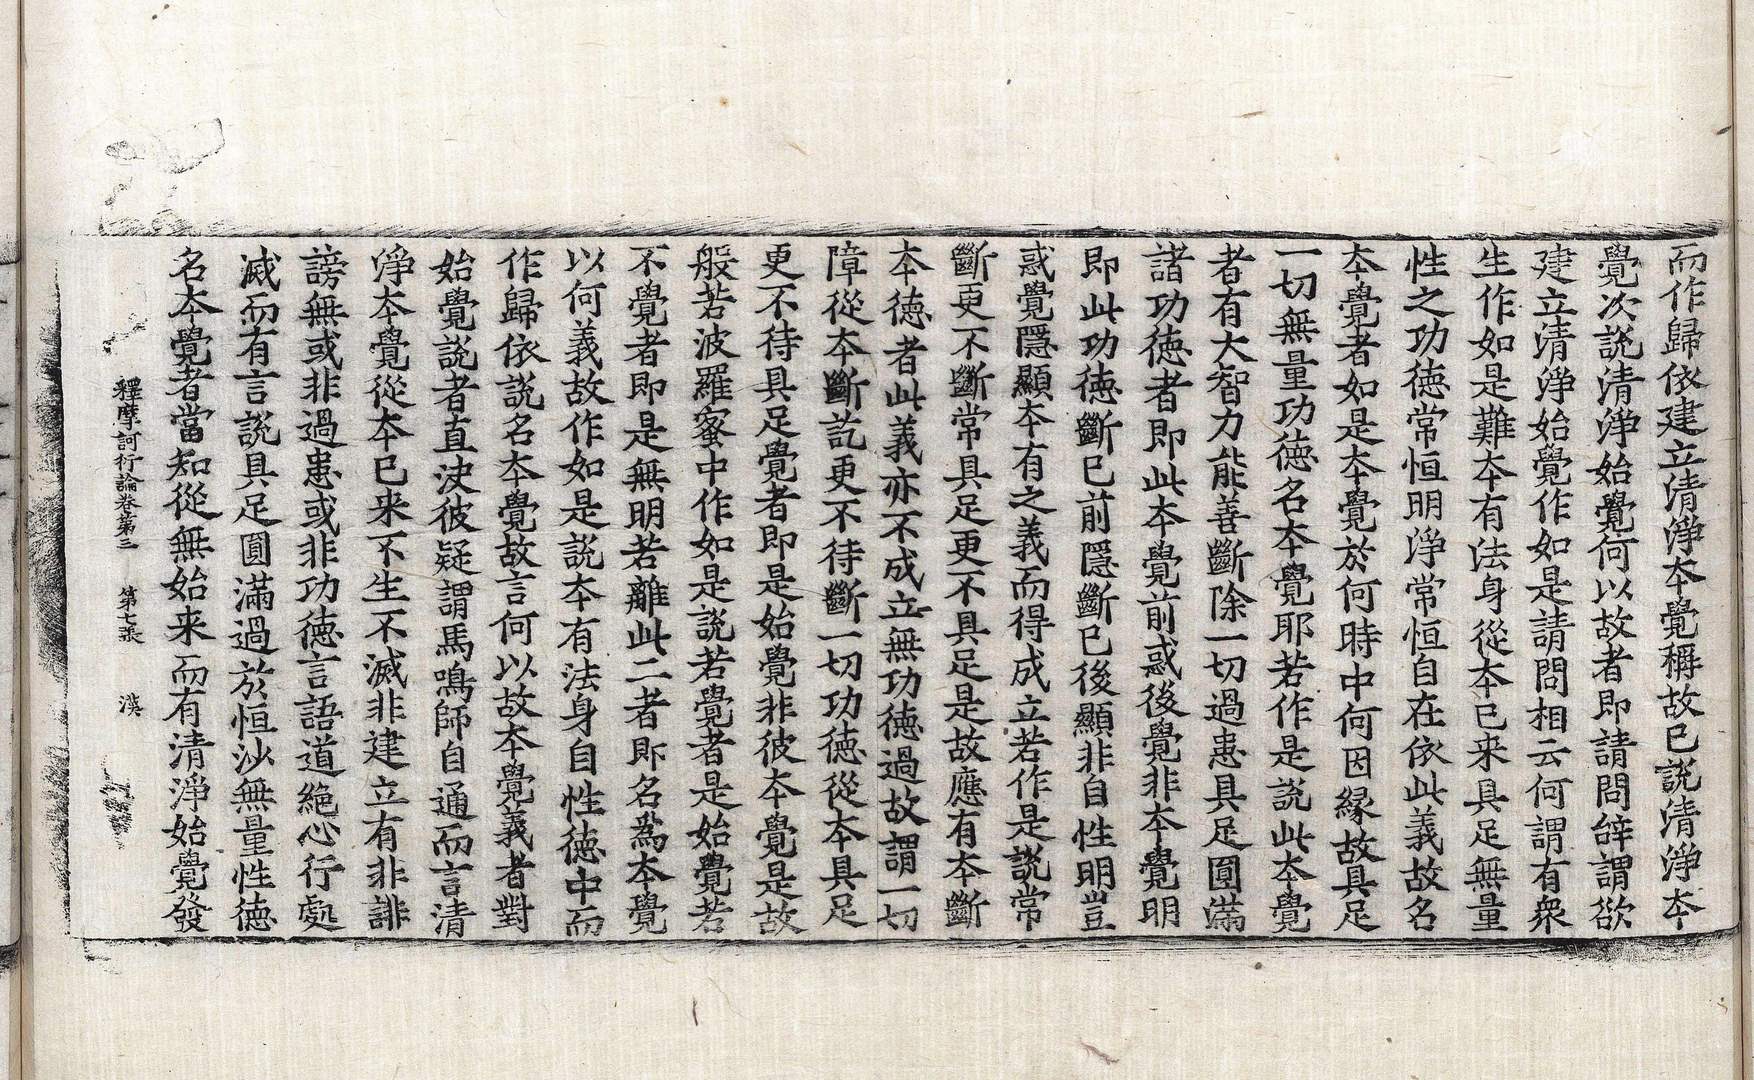 而作歸依建立清淨本覺稱故已說清淨本
覺次說清淨始覺何以故者即請問辞謂欲
建立清淨始覺作如是請問相云何謂有衆
生作如是難本有法身從本已来具足無量
性之功德常恒明淨常恒自在依此義故名
本覺者如是本覺於何時中何因緣故具足
一切無量功德名本覺耶若作是說此本覺
者有大智力能善斷除一切過患具足圓滿
諸功德者即此本覺前惑後覺非本覺明
即此功德斷已前隱斷已後顯非自性明豈
惑覺隱顯本有之義而得成立若作是說常
斷更不斷常具足更不具足是故應有本斷
本德者此義亦不成立無功德過故謂一切
障從本斷訖更不待斷一切功德從本具足
更不待具足覺者即是始覺非彼本覺是故
般若波羅蜜中作如是說若覺者是始覺若
不覺者即是無明若離此二者即名爲本覺
以何義故作如是說本有法身自性德中而
作歸依說名本覺故言何以故本覺義者對
始覺說者直决彼疑謂馬鳴師自通而言清
淨本覺從本已来不生不滅非建立有非誹
謗無或非過患或非功德言語道絶心行處
滅而有言說具足圓滿過於恒沙無量性德
名本覺者當知從無始来而有清淨始覺發
釋摩訶衍論卷第三 第七張 漢